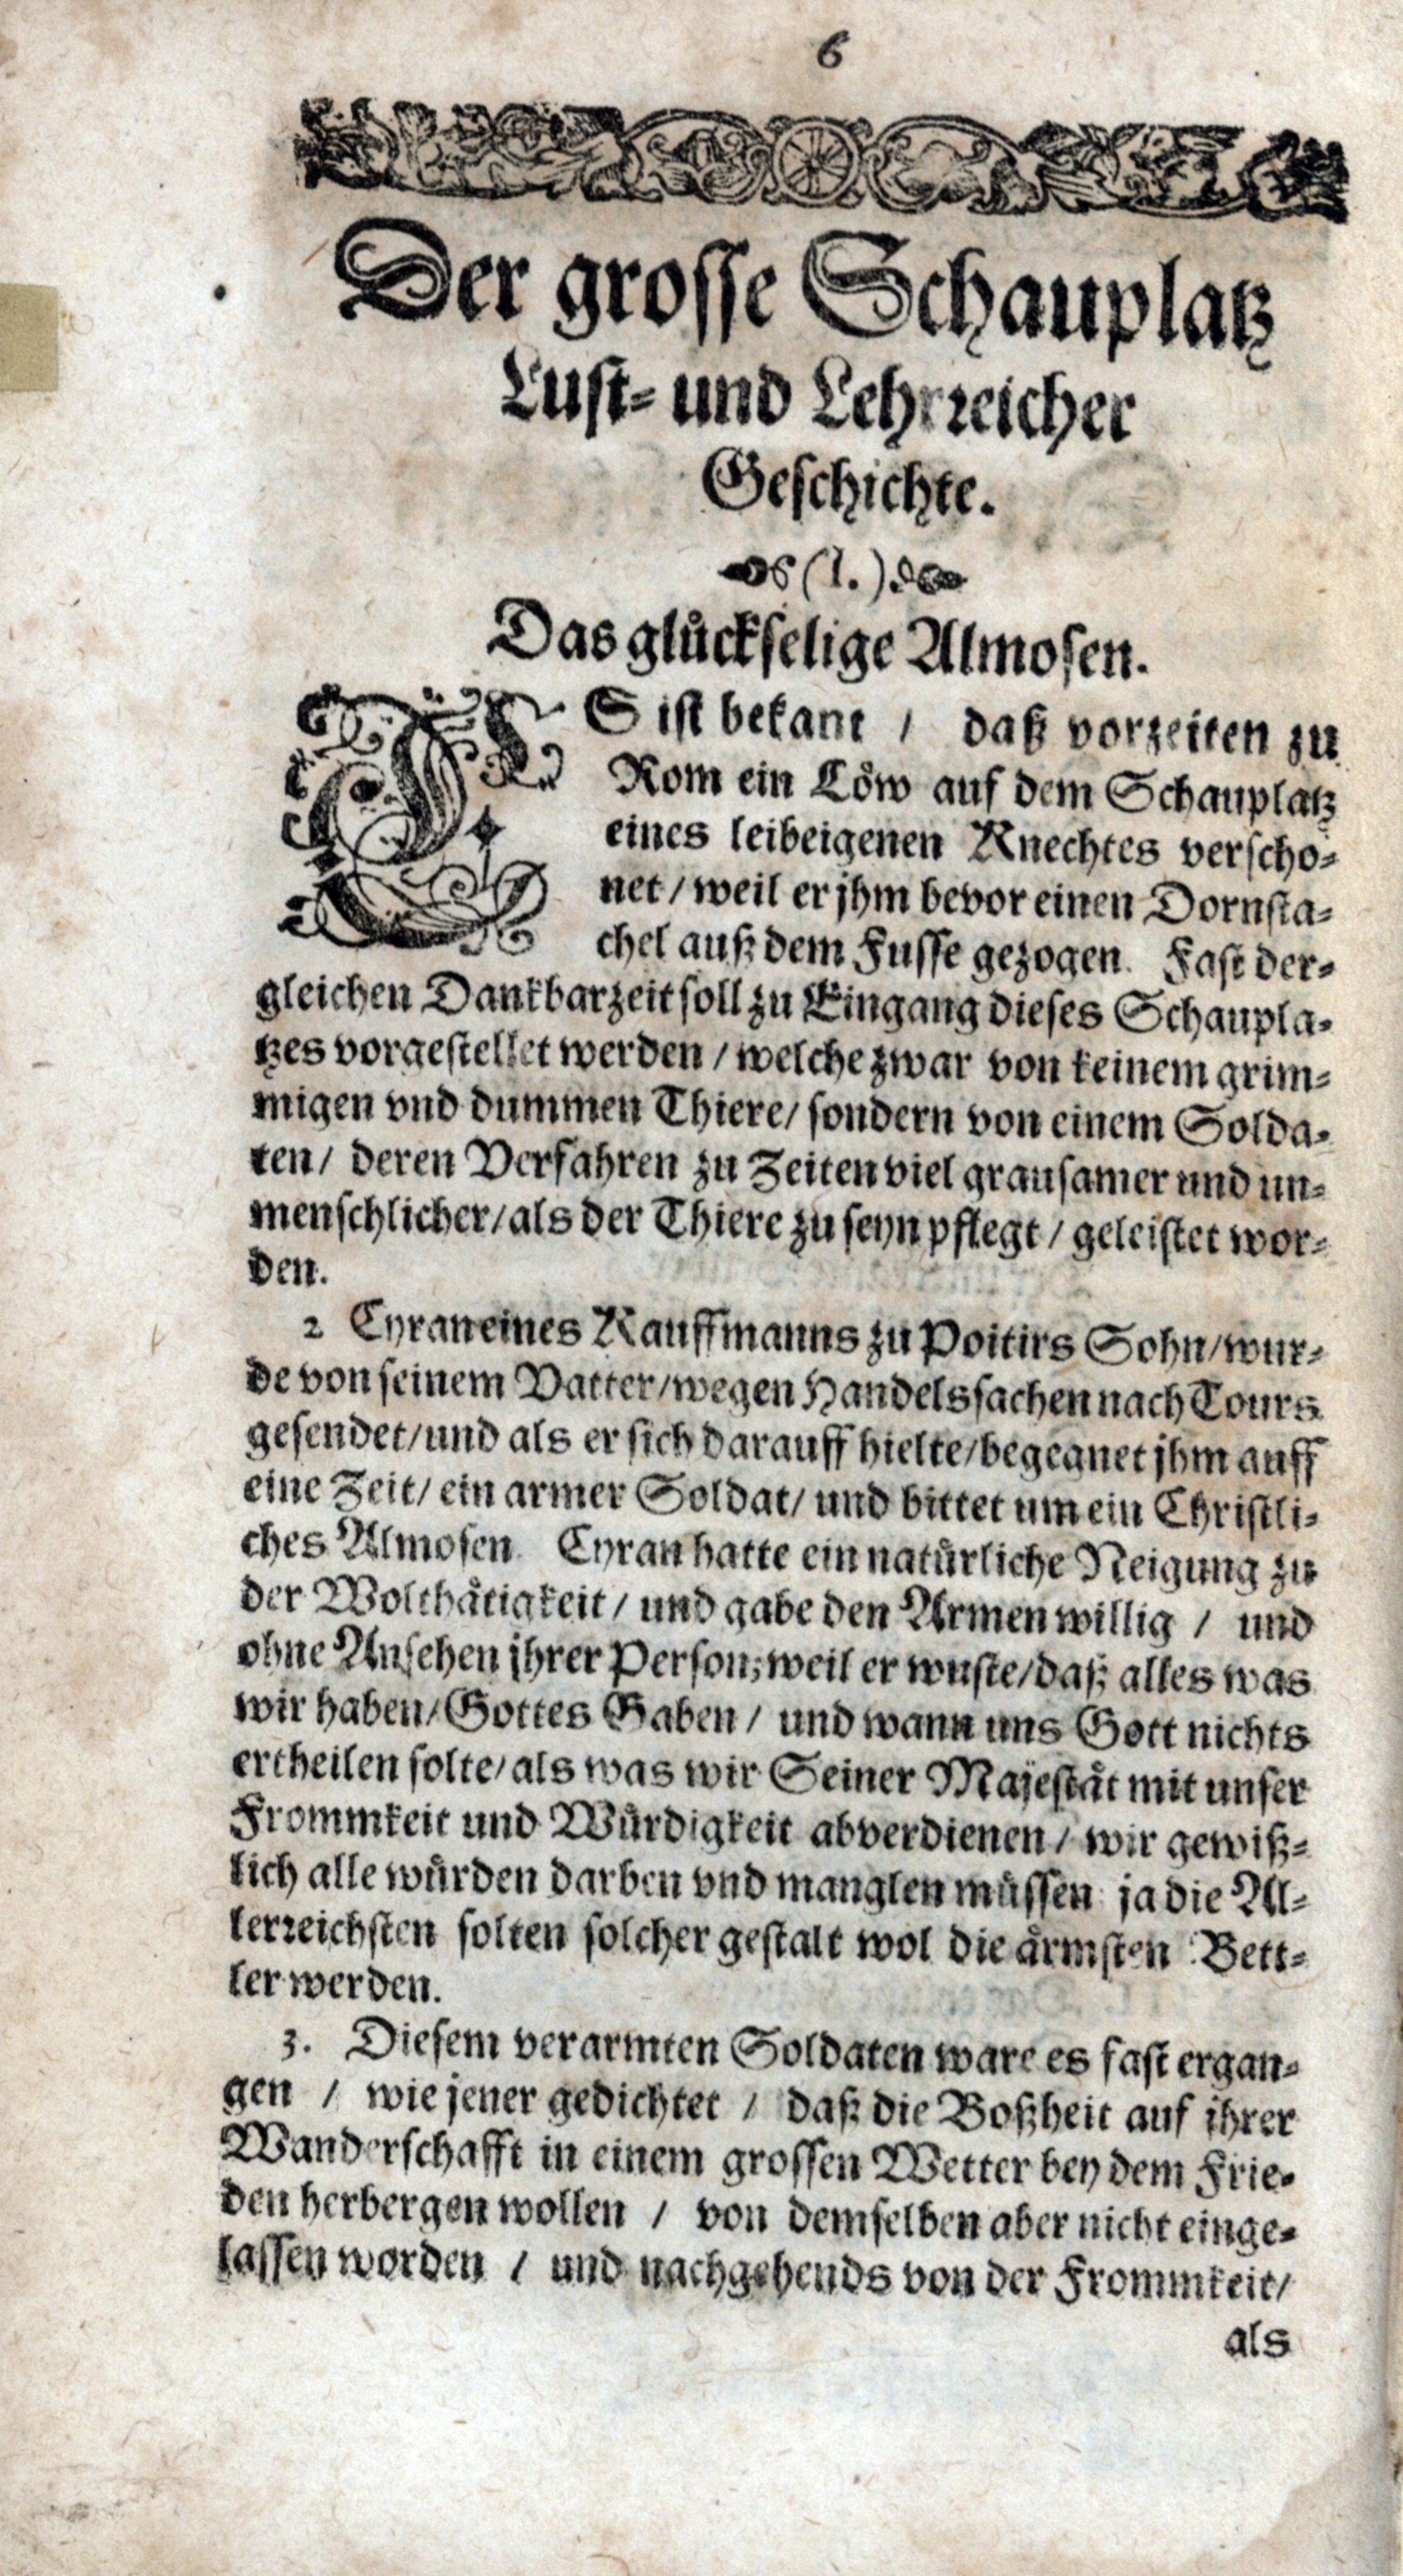 6
Der grosse Schauplatz
Lust- und Lehrreicher
Geschichte.
(I.)
Das glückselige Almosen.
ES ist bekant / daß vorzeiten zu
Rom ein Löw auf dem Schauplatz
eines leibeigenen Knechtes verscho-
net / weil er jhm bevor einen Dornsta-
chel auß dem Fusse gezogen. Fast der-
gleichen Dankbarzeit soll zu Eingang dieses Schaupla-
tzes vorgestellet werden / welche zwar von keinem grim-
migen vnd dummen Thiere / sondern von einem Solda-
ten / deren Verfahren zu Zeiten viel grausamer und un-
menschlicher / als der Thiere zu seyn pflegt / geleistet wor-
den.
2 Cyran eines Kauffmanns zu Poitirs Sohn / wur-
de von seinem Vatter / wegen Handelssachen nach Tours
gesendet / und als er sich darauff hielte / begegnet jhm auff
eine Zeit / ein armer Soldat / und bittet um ein Christli-
ches Almosen. Cyran hatte ein natürliche Neigung zu
der Wolthätigkeit / und gabe den Armen willig / und
ohne Ansehen jhrer Person; weil er wuste / daß alles was
wir haben / Gottes Gaben / und wann uns Gott nichts
ertheilen solte / als was wir Seiner Majestät mit unser
Frommkeit und Würdigkeit abverdienen / wir gewiß-
lich alle würden darben vnd manglen müssen ja die Al-
lerreichsten solten solcher gestalt wol die ärmsten Bett-
ler werden.
3. Diesem verarmten Soldaten ware es fast ergan-
gen / wie jener gedichtet / daß die Boßheit auf jhrer
Wanderschafft in einem grossen Wetter bey dem Frie-
den herbergen wollen / von demselben aber nicht einge-
lassen worden / und nachgehends von der Frommkeit /
als